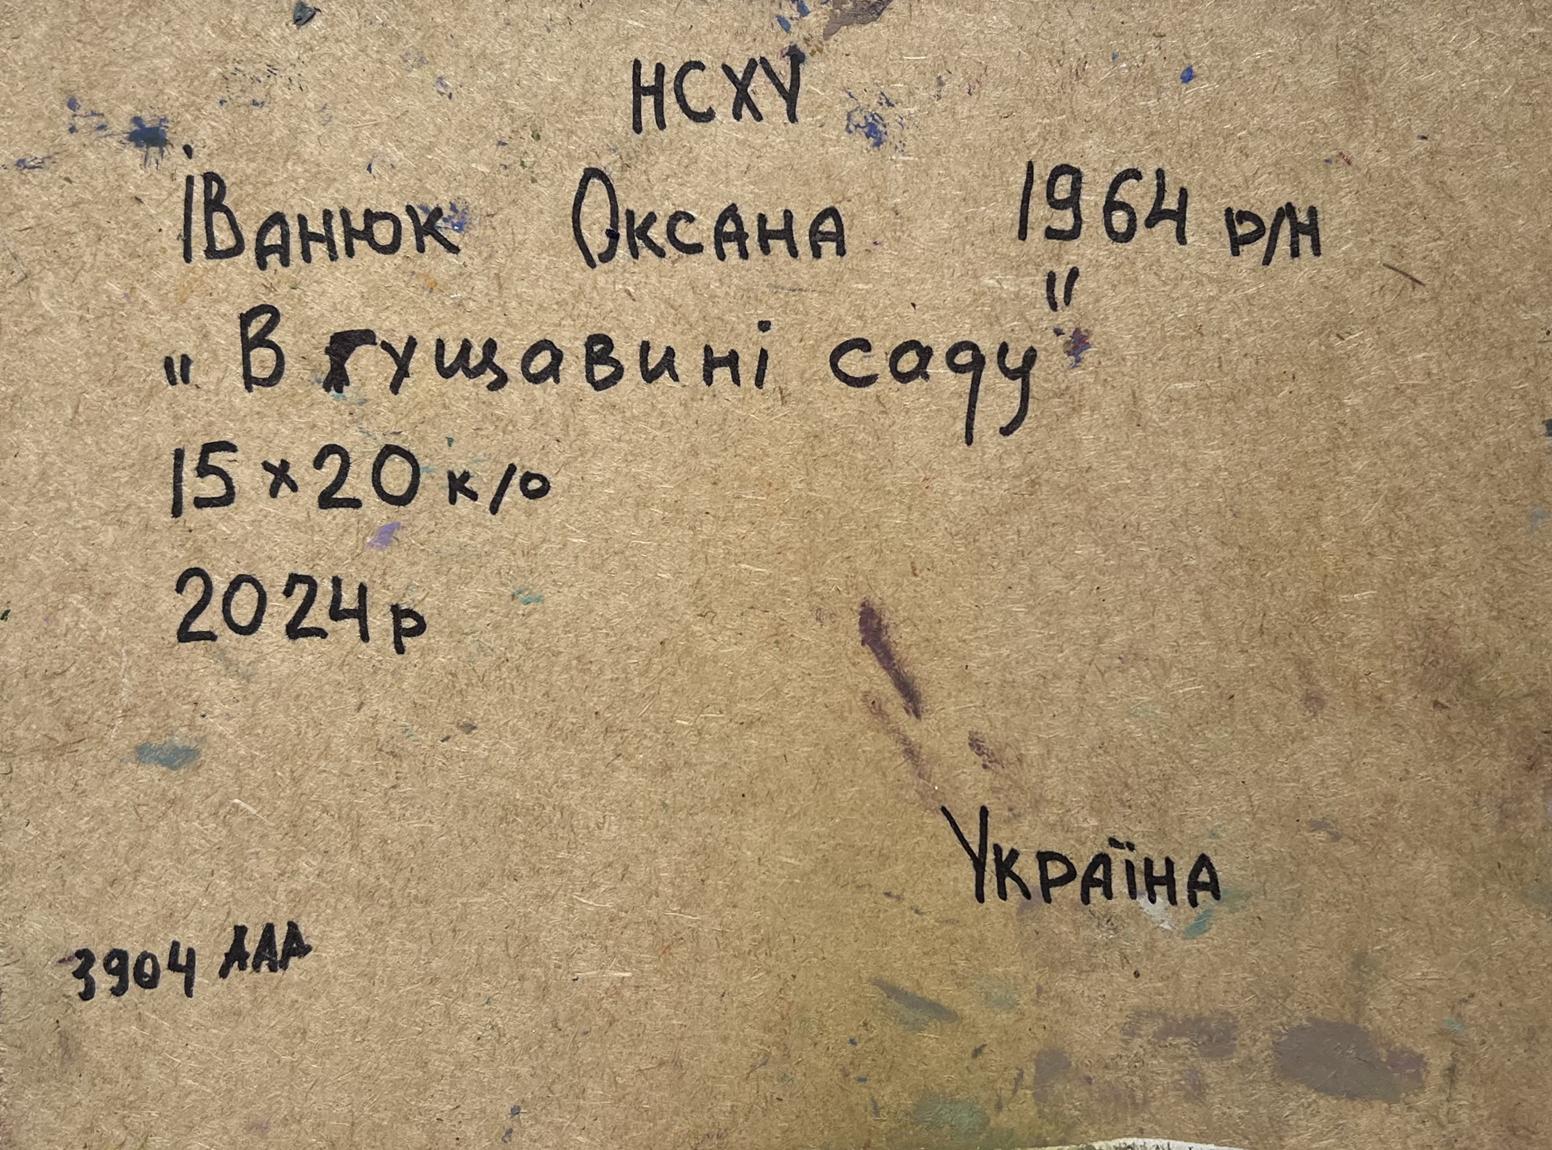 НСХУ
Іванюк Оксана 1964 р/н
"В гущавині саду"
15×20 к/о
2024р
Україна
3904 ААА